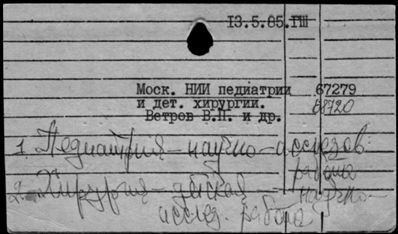 13.5.85.ГШ
Моск. НИИ педиатрии 67279
и дет. хирургии. 68720
Ветров В.П. и др.
1. Педиатрия — научно-исслед.
работа
2. Хирургия — детская — научно-
исслед. работа